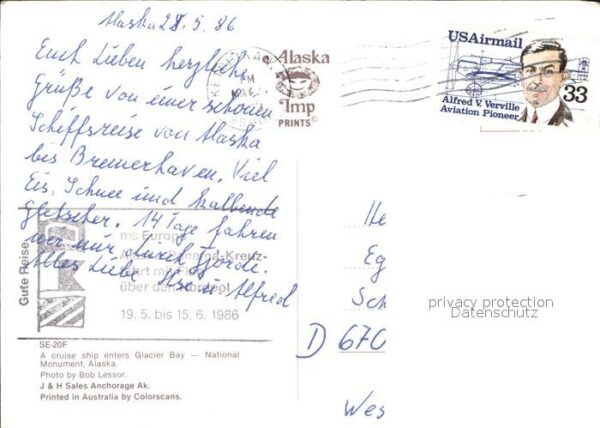 Alaska 28.5.86
Euch Lieben herzliche
Grüße von einer schönen
Schiffsreise von Alaska
bis Bremerhaven. Viel
Eis, Schnee und kalbende
Gletscher. 14 Tage fahren
wir nur durch Fjorde.
Alles Liebe Alfred
Alaska
Imp
PRINTS
PM
USAirmail
Alfred V. Verville
Aviation Pioneer
33
Gute Reise
ms Europa
Panama-Kreuz-
fahrt mit
über den Nordpol
19. 5. bis 15. 6. 1986
SE-20F
A cruise ship enters Glacier Bay — National
Monument, Alaska.
Photo by Bob Lessor.
J & H Sales Anchorage Ak.
Printed in Australia by Colorscans.
He
Eg
Sch
D 670
Wes
privacy protection
Datenschutz